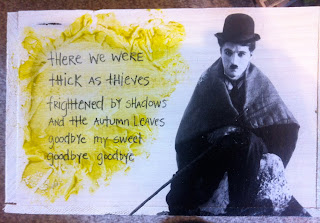 there we were
thick as thieves
frightened by shadows
and the autumn leaves
goodbye my sweet
goodbye goodbye